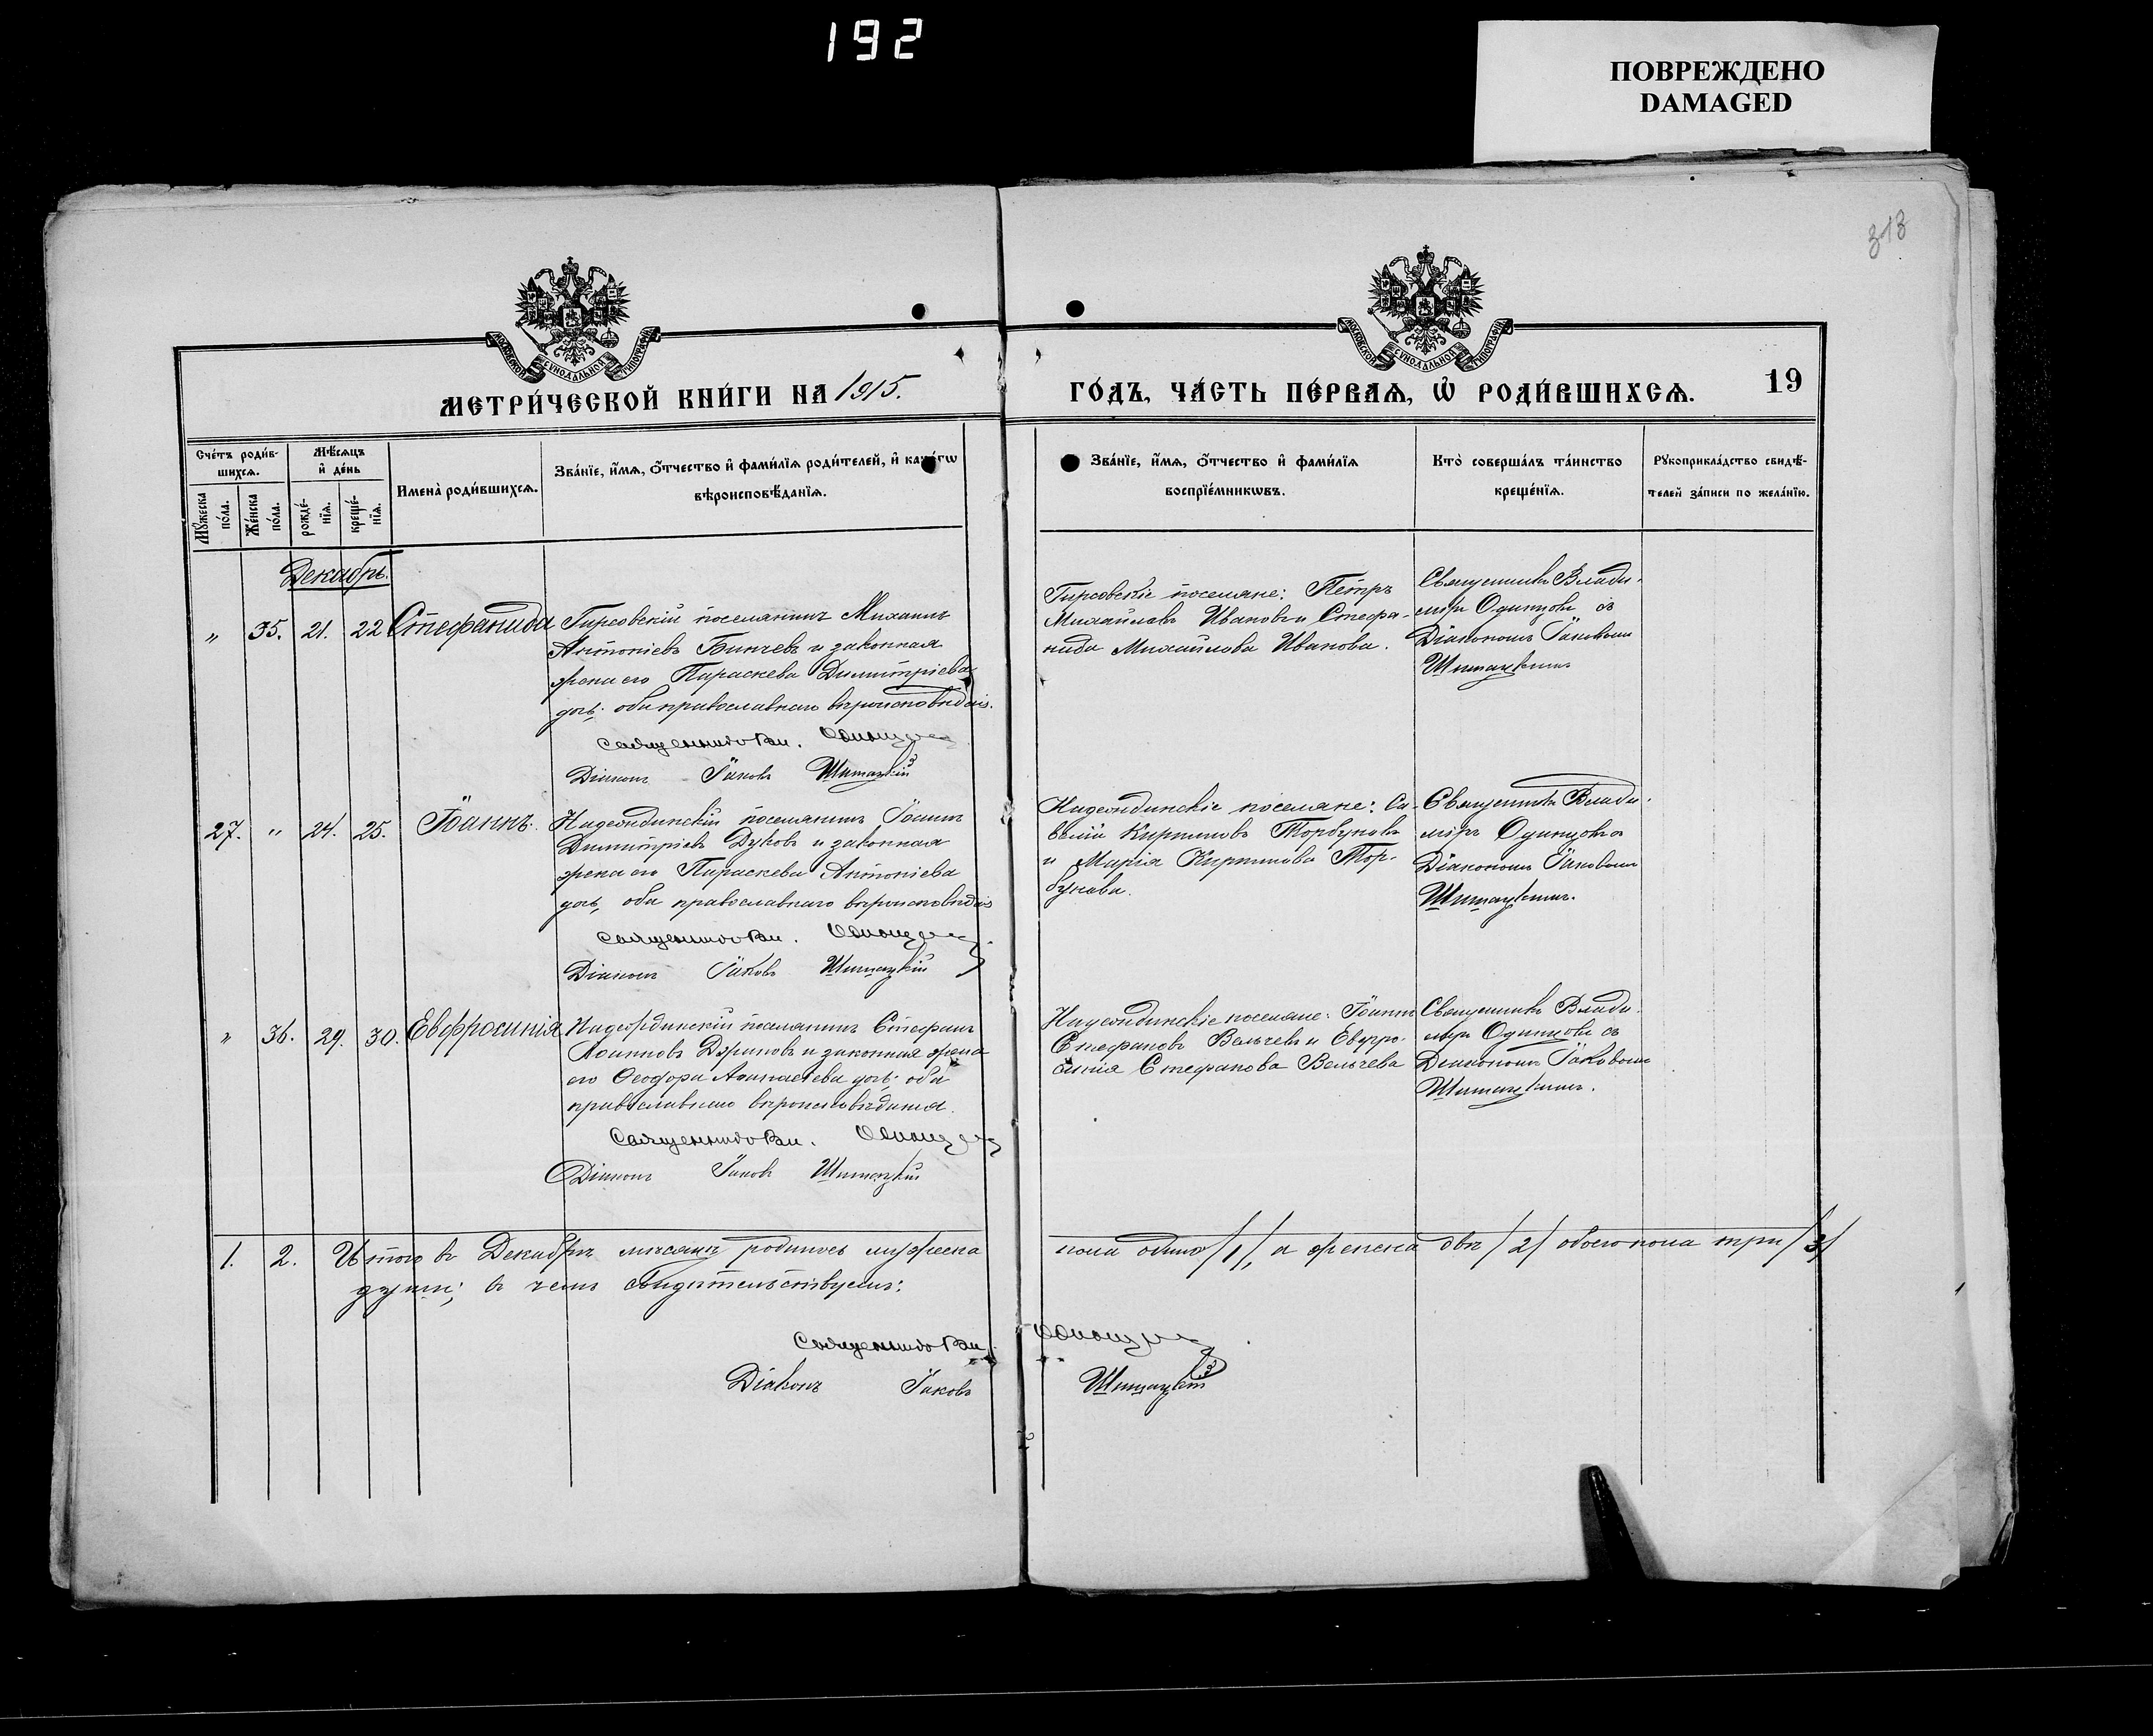 192
ПОВРЕЖДЕНО
DAMAGED
313
МОСКОВСКОЙ СУНОДАЛЬНОЙ ТИПОГРАФІИ
МОСКОВСКОЙ СУНОДАЛЬНОЙ ТИПОГРАФІИ
МЕТРИ́ЧЕСКОЙ КНИ́ГИ НА 1915.
ГО́ДЪ, ЧА́СТЬ ПЕ́РВАѦ, Ѡ҆ РОДИ́ВШИХСѦ.
19
Сче́тъ роди́в-
шихсѧ.
Мѣ́сѧцъ
и҆ де́нь
Мꙋ́жеска
по́ла.
Же́нска
по́ла.
рожде́-
нїѧ.
креще́-
нїѧ.
Имена̀ роди́вшихсѧ.
Зва́нїе, и҆́мѧ, ѻ҆́тчество и҆ фами́лїѧ роди́телей, и҆ како́гѡ
вѣроисповѣ́данїѧ.
Зва́нїе, и҆́мѧ, ѻ҆́тчество и҆ фами́лїѧ
воспрїе́мникѡвъ.
Кто̀ соверша́лъ та́инство
креще́нїѧ.
Рꙋкоприкла́дство свидѣ́-
телей за́писи по жела́нїю.
Декабрь.
„ 35. 21. 22 Стефанида
Гирсовскій поселянинъ Михаилъ
Антоніевъ Бинчевъ и законная
жена его Параскева Димитріева
дочь; оба православнаго вѣроисповѣданія.
Священникъ Вл. Одинцовъ
Діаконъ Іаковъ Шишацкій
Гирсовскіе поселяне: Петръ
Михайловъ Ивановъ и Стефа-
нида Михайлова Иванова.
Священникъ Влади-
міръ Одинцовъ съ
Діакономъ Іаковомъ
Шишацкимъ
27. „ 24. 25. Іоаннъ.
Надеждинскій поселянинъ Іоаннъ
Димитріевъ Дуковъ и законная
жена его Параскева Антоніева
дочь, оба православнаго вѣроисповѣданія
Священникъ Вл. Одинцовъ.
Діаконъ Іаковъ Шишацкій
Надеждинскіе поселяне: Са-
ввій Кирилловъ Торбуновъ
и Марія Кириллова Тор-
бунова.
Священникъ Влади-
міръ Одинцовъ съ
Діакономъ Іаковомъ
Шишацкимъ.
„ 36. 29. 30. Евфросинія
Надеждинскій поселянинъ Стефанъ
Іоанновъ и законная жена
его Ѳеодора Аѳанасіева дочь; оба
православнаго вѣроисповѣданія.
Священникъ Вл. Одинцовъ
Діаконъ Іаковъ Шишацкій
Надеждинскіе поселяне: Іоаннъ
Стефановъ Вельчевъ и Евфро-
синія Стефанова Вельчева
Священникъ Влади-
міръ Одинцовъ съ
Діакономъ Іаковомъ
Шишацкимъ.
1. 2. Итого въ Декабрѣ мѣсяцѣ родилось мужеска пола одинъ /1/, а женска двѣ /2/ обоего пола три /3/
души; въ чемъ свидѣтельствуемъ:
Священникъ Вл. Одинцовъ.
Діаконъ Іаковъ Шишацкій